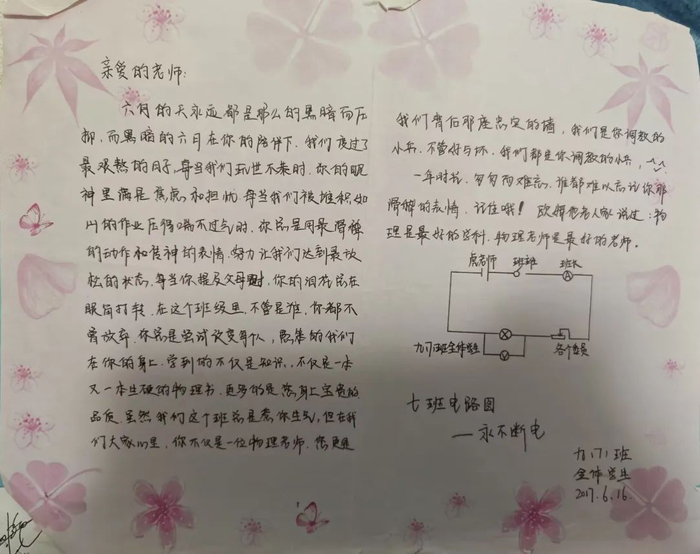 亲爱的老师:
六月的天永远都是那么的黑暗而压
抑,而黑暗的六月在你的陪伴下,我们度过了
最艰熬的日子,每当我们玩世不恭时,你的眼
神里满是焦虑和担忧,每当我们被堆积如
山的作业压得喘不过气时,你总是用最
的动作和 神的表情,努力让我们达到最放
松的状态,每当你提及父母时,你的泪花总在
眼角打转,在这个班级里,不管是谁,你都不
曾放弃,你总是尝试改变每个人,愚笨的我们
在你的身上,学到的不仅是知识,不仅是一本
又一本生硬的物理书,更多的是您身上宝贵的
品质,虽然我们这个班总是惹你生气,但在我
们大家心里,你不仅是一位物理老师,您更是
我们背后那座忠实的墙,我们是你调教的
小书,不管好与坏,我们都是你调教的小书,^^
一年时光,匆匆而难忘,谁都难以忘记你那
的表情,记住哦!欧姆他老人家说过:物
理是最好的学科,物理老师是最好的老师。
虎老师 班班 班长
A
X
九(7)班全体学生 各个委员
V
七班电路图
——永不断电
九(7)班
全体学生
2017.6.16.